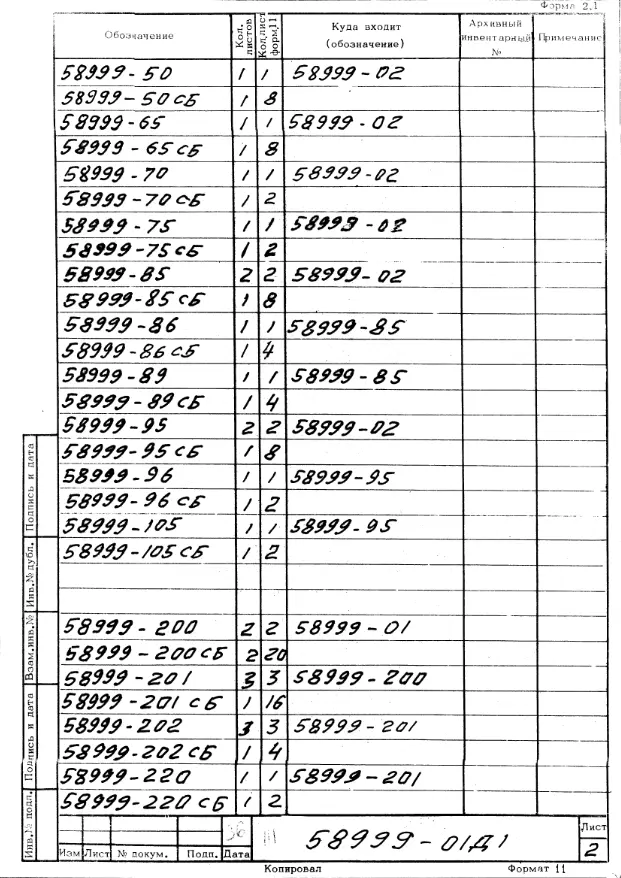 Форма 2.1
Обозначение Кол. листов Кол.лист форм.11 Куда входит (обозначение) Архивный инвентарный № Примечание
58999-50 1 1 58999-02
58999-50СБ 1 8
58999-65 1 1 58999-02
58999-65СБ 1 8
58999-70 1 1 58999-02
58999-70СБ 1 2
58999-75 1 1 58999-02
58999-75СБ 1 2
58999-85 2 2 58999-02
58999-85СБ 1 8
58999-86 1 1 58999-85
58999-86СБ 1 4
58999-89 1 1 58999-85
58999-89СБ 1 4
58999-95 2 2 58999-02
58999-95СБ 1 8
58999-96 1 1 58999-95
58999-96СБ 1 2
58999-105 1 1 58999-95
58999-105СБ 1 2
58999-200 2 2 58999-01
58999-200СБ 2 20
58999-201 3 3 58999-200
58999-201СБ 1 16
58999-202 3 3 58999-201
58999-202СБ 1 4
58999-220 1 1 58999-201
58999-220СБ 1 2
Подпись и дата
Инв.№ дубл.
Взам.инв.№
Подпись и дата
Инв.№ подл.
Изм Лист № докум. Подп. Дата
58999-01Д1
Лист
2
Копировал Формат 11